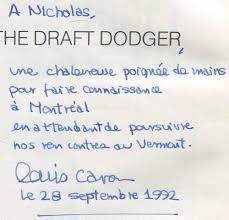 A Nicholas,
THE DRAFT DODGER
une chaleureuse poignée de mains
pour faire connaissance
à Montréal
en attendant de poursuivre
nos rencontres au Vermont.
Louis Caron
le 28 septembre 1992